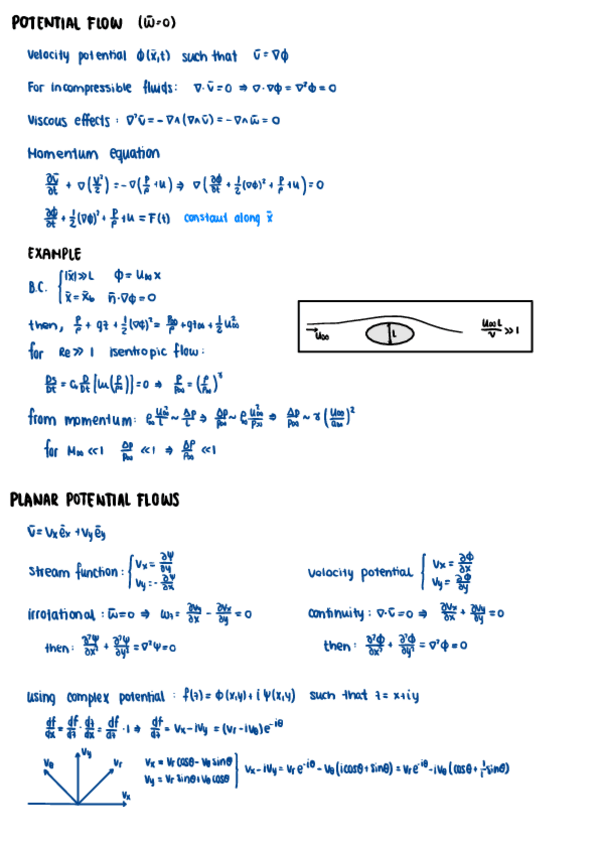 POTENTIAL FLOW (ω̄=0)
Velocity potential ϕ(x̄,t) such that v̄=∇ϕ
For incompressible fluids: ∇·v̄=0 ⇒ ∇·∇ϕ=∇²ϕ=0
Viscous effects: ∇²v̄=-∇∧(∇∧v̄)=-∇∧ω̄=0
Momentum equation
∂v̄/∂t + ∇(v²/2)=-∇(p/ρ+u) ⇒ ∇(∂ϕ/∂t+1/2(∇ϕ)²+p/ρ+u)=0
∂ϕ/∂t+1/2(∇ϕ)²+p/ρ+u=F(t) constant along x̄
EXAMPLE
B.C. { |x̄|≫L ϕ=U∞x
x̄=x̄b n̄·∇ϕ=0
then, p/ρ+gz+1/2(∇ϕ)²=p∞/ρ+gz∞+1/2U∞²
→U∞ L U∞L/ν≫1
for Re≫1 isentropic flow:
Ds/Dt=Cv D/Dt[ln(p/ρ^γ)]=0 ⇒ p/p∞=(ρ/ρ∞)^γ
from momentum: ρ∞U∞²/L~Δp/L ⇒ Δp/p∞~ρ∞U∞²/p∞ ⇒ Δp/p∞~γ(U∞/a∞)²
for M∞≪1 Δp/p∞≪1 ⇒ Δρ/ρ∞≪1
PLANAR POTENTIAL FLOWS
v̄=Vxēx+Vyēy
Stream function: { Vx=∂Ψ/∂y
Vy=-∂Ψ/∂x
Velocity potential { Vx=∂ϕ/∂x
Vy=∂ϕ/∂y
irrotational: ω̄=0 ⇒ ωz=∂Vy/∂x-∂Vx/∂y=0
continuity: ∇·v̄=0 ⇒ ∂Vx/∂x+∂Vy/∂y=0
then: ∂²Ψ/∂x²+∂²Ψ/∂y²=∇²Ψ=0
then: ∂²ϕ/∂x²+∂²ϕ/∂y²=∇²ϕ=0
using complex potential: f(z)=ϕ(x,y)+iΨ(x,y) such that z=x+iy
df/dx=df/dz·dz/dx=df/dz·1 ⇒ df/dz=Vx-iVy=(Vr-iVθ)e^-iθ
Vθ Vy Vr Vx
Vx=Vr cosθ-Vθ sinθ
Vy=Vr sinθ+Vθ cosθ } Vx-iVy=Vr e^-iθ-Vθ(i cosθ+sinθ)=Vr e^-iθ-iVθ(cosθ+1/i sinθ)